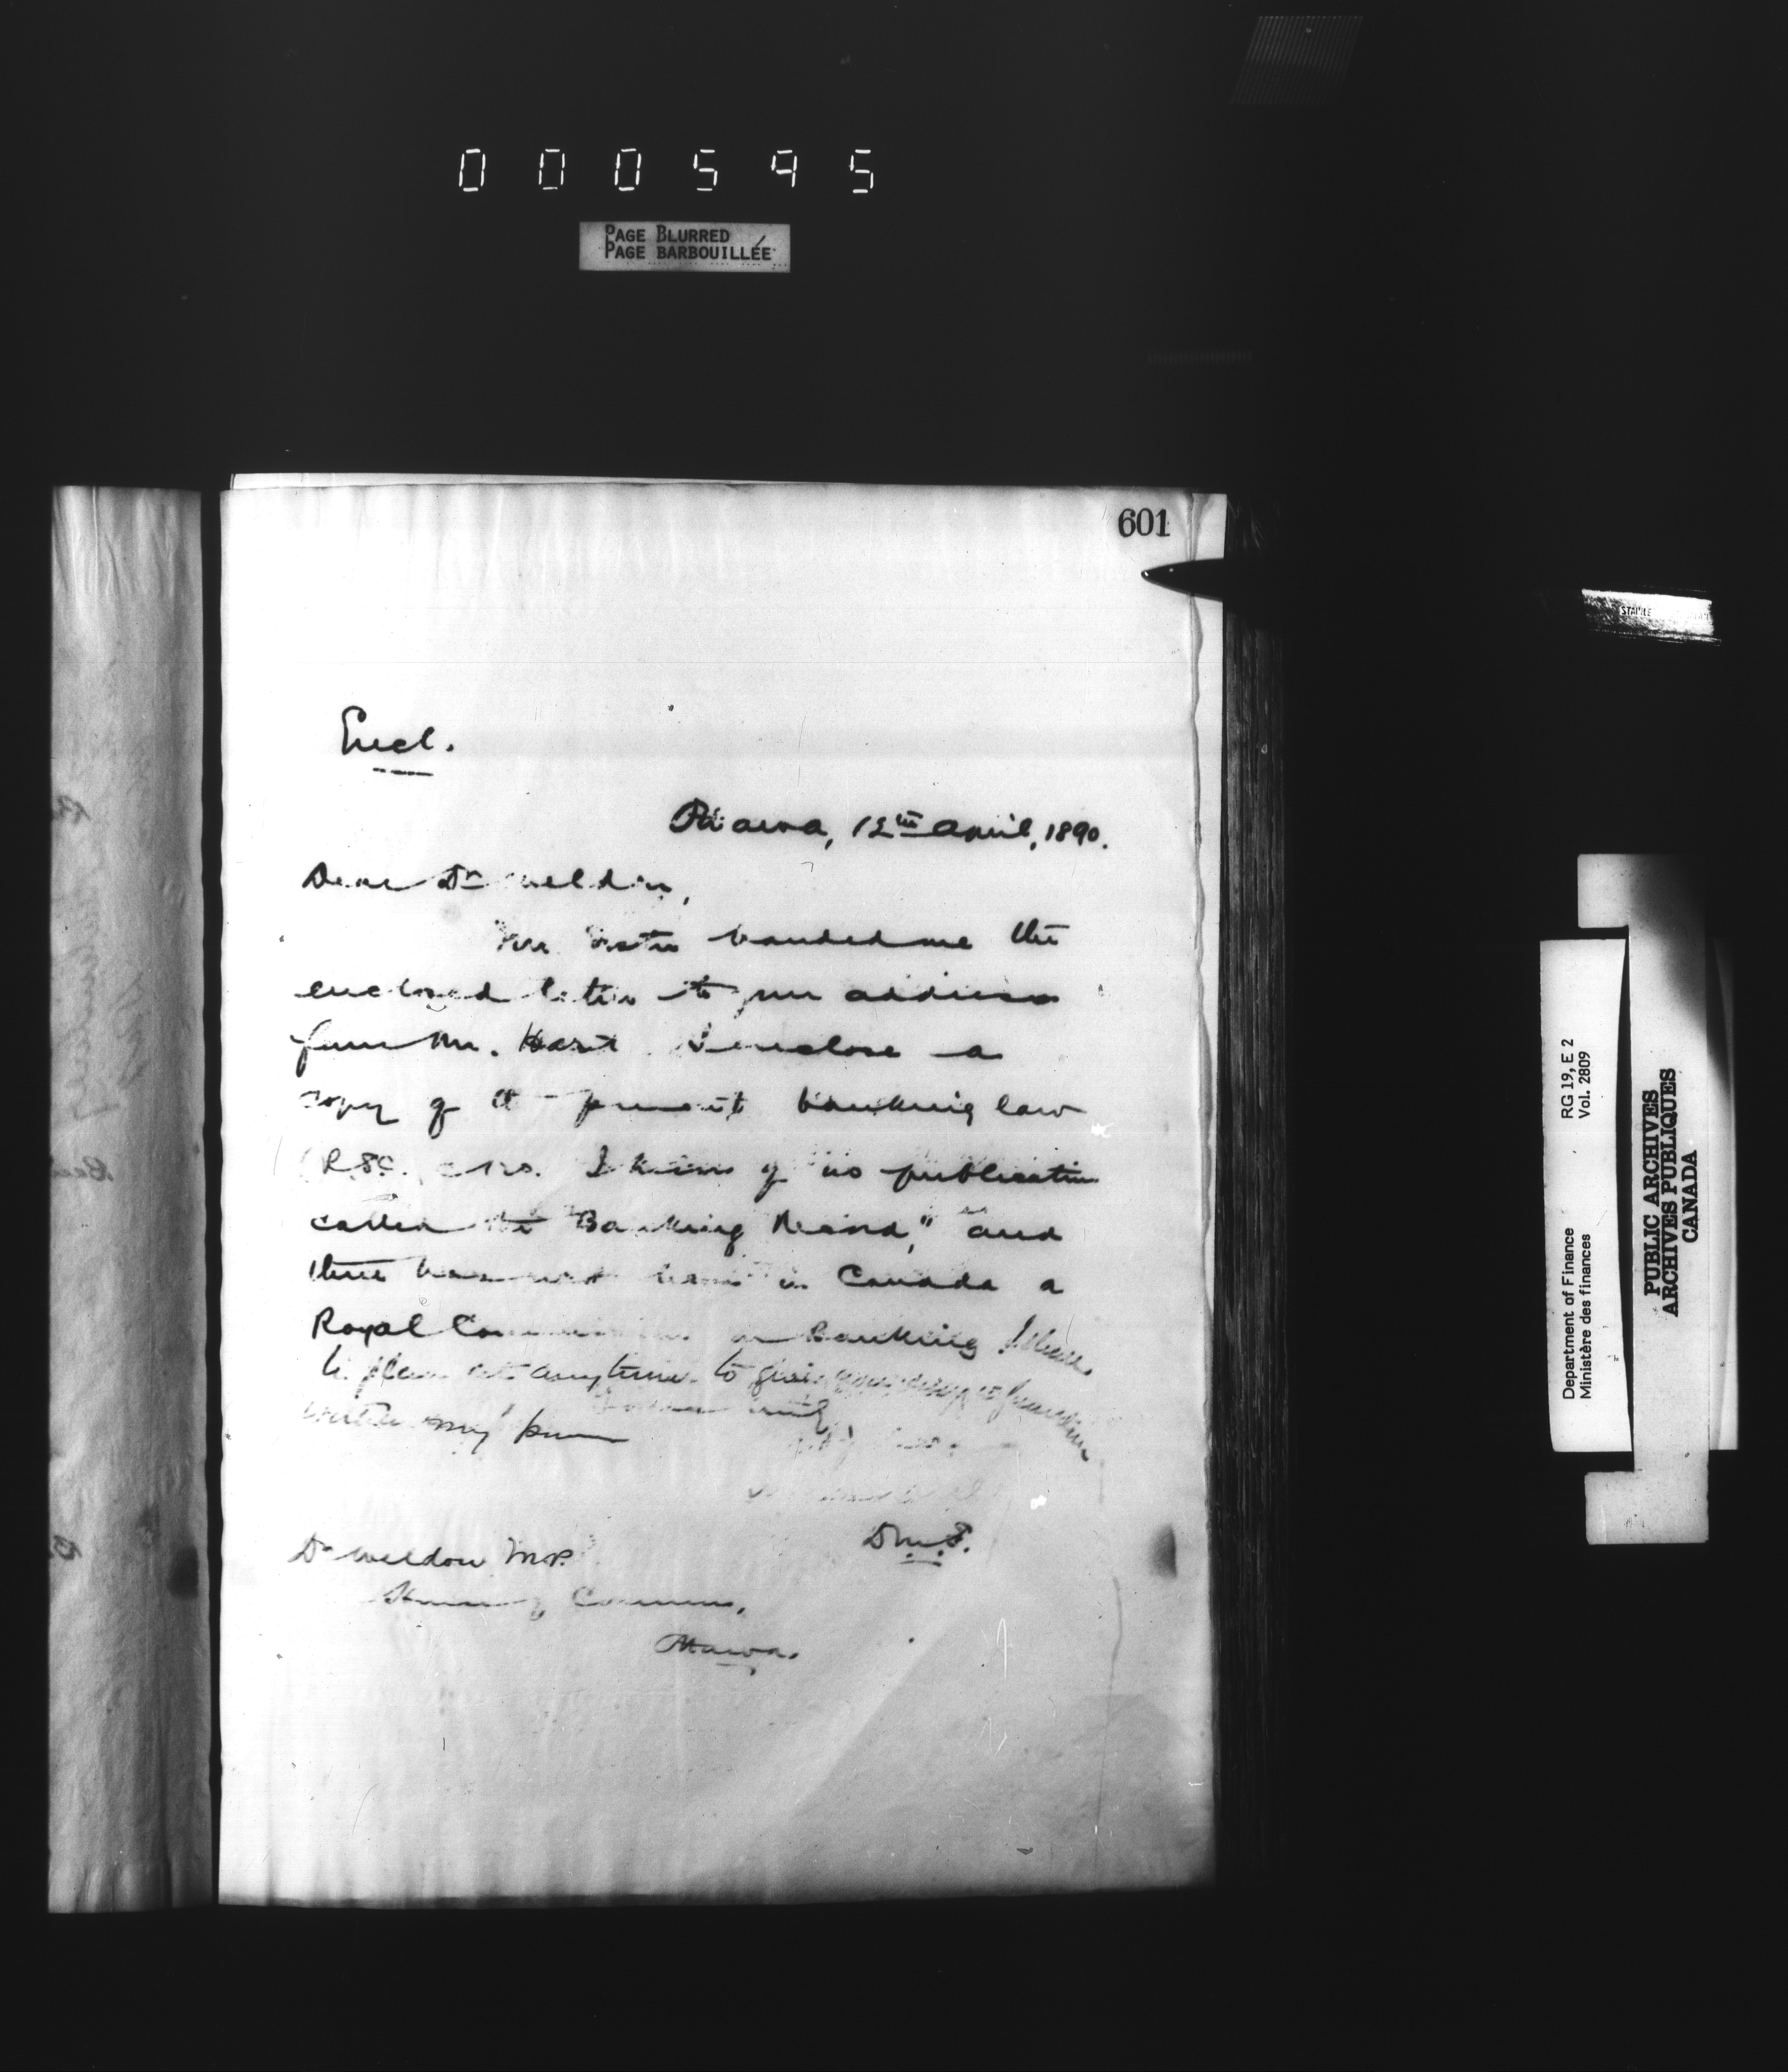 000595
PAGE BLURRED
PAGE BARBOUILLÉE
601
Encl.
Ottawa, 12th April, 1890.
Dear Dr Weldon,
Mr Foster handed me the
enclosed letter to your address
from Mr. Hart I enclose a
copy of the present banking law
(R.S.C. c 120. I know of no publication
called the "Banking Record," and
there has not been in Canada a
Royal Commission on Banking I shall
be pleased at anytime to give you any information
within my power
Dr Weldon M.P.
House of Commons,
Ottawa.
D.M.F.
STAPLE
RG 19, E 2
Vol. 2809
Department of Finance
Ministère des finances
PUBLIC ARCHIVES
ARCHIVES PUBLIQUES
CANADA